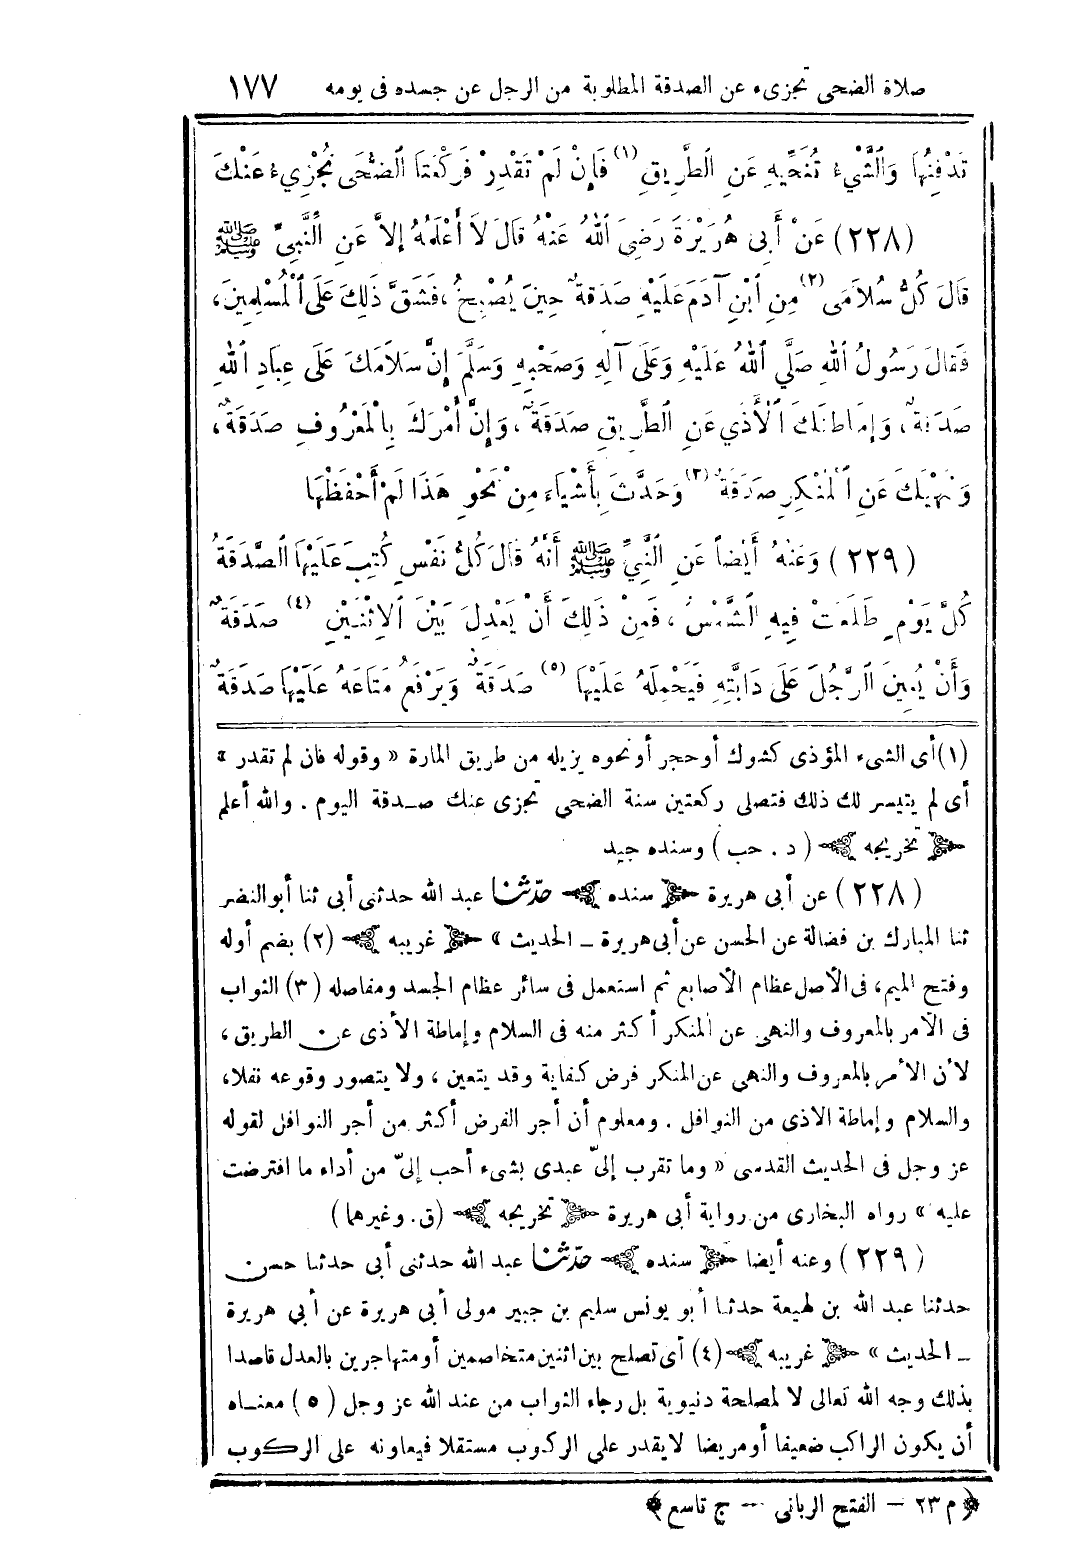 صلاة الضحى تجزىء عن الصدقة المطلوبة من الرجل عن جسده فى يومه ١٧٧
تَدْفِنُهَا وَالشَّيْءُ تُنَحِّيهِ عَنِ الطَّرِيقِ (١) فَإِنْ لَمْ تَقْدِرْ فَرَكْعَتَا الضُّحَى تُجْزِيءُ عَنْكَ
(٢٢٨) عَنْ أَبِى هُرَيْرَةَ رَضِىَ اللهُ عَنْهُ قَالَ لَا أَعْلَمُهُ إِلاَّ عَنِ النَّبِىِّ ﷺ
قَالَ كُلُّ سُلاَمَى (٢) مِنِ ابْنِ آدَمَ عَلَيْهِ صَدَقَةٌ حِينَ يُصْبِحُ، فَشَقَّ ذَلِكَ عَلَى الْمُسْلِمِينَ،
فَقَالَ رَسُولُ اللهِ صَلَّي اللهُ عَلَيْهِ وَعَلَى آلِهِ وَصَحْبِهِ وَسَلَّمَ إِنَّ سَلَامَكَ عَلَى عِبَادِ اللهِ
صَدَقَةٌ، وَإِمَاطَتَكَ الْأَذَي عَنِ الطَّرِيقِ صَدَقَةٌ، وَإِنَّ أَمْرَكَ بِالْمَعْرُوفِ صَدَقَةٌ،
وَنَهْيَكَ عَنِ الْمُنْكَرِ صَدَقَةٌ (٣) وَحَدَّثَ بِأَشْيَاءَ مِنْ نَحْوِ هَذَا لَمْ أَحْفَظْهَا
(٢٢٩) وَعَنْهُ أَيْضاً عَنِ النَّبِيِّ ﷺ أَنَّهُ قَالَ كُلُّ نَفْسٍ كُتِبَ عَلَيْهَا الصَّدَقَةُ
كُلَّ يَوْمٍ طَلَعَتْ فِيهِ الشَّمْسُ، فَمِنْ ذَلِكَ أَنْ يَعْدِلَ بَيْنَ الِاثْنَيْنِ (٤) صَدَقَةٌ
وَأَنْ يُعِينَ الرَّجُلَ عَلَى دَابَّتِهِ فَيَحْمِلَهُ عَلَيْهَا (٥) صَدَقَةٌ وَيَرْفَعُ مَتَاعَهُ عَلَيْهَا صَدَقَةٌ
(١) أى الشىء المؤذى كشوك أو حجر أو نحوه يزيله من طريق المارة « وقوله فان لم تقدر »
أى لم يتيسر لك ذلك فتصلى ركعتين سنة الضحى تجزى عنك صدقة اليوم. والله أعلم
﴿ تخريجه ﴾ (د. حب) وسنده جيد
(٢٢٨) عن أبى هريرة ﴿ سنده ﴾ حدّثنا عبد الله حدثنى أبى ثنا أبو النضر
ثنا المبارك بن فضالة عن الحسن عن أبى هريرة ـ الحديث » ﴿ غريبه ﴾ (٢) بضم أوله
وفتح الميم، فى الأصل عظام الأصابع ثم استعمل فى سائر عظام الجسد ومفاصله (٣) الثواب
فى الأمر بالمعروف والنهى عن المنكر أكثر منه فى السلام وإماطة الأذى عن الطريق،
لأن الأمر بالمعروف والنهى عن المنكر فرض كفاية وقد يتعين، ولا يتصور وقوعه نفلا،
والسلام وإماطة الاذى من النوافل. ومعلوم أن أجر الفرض أكثر من أجر النوافل لقوله
عز وجل فى الحديث القدسى « وما تقرب إلىّ عبدى بشىء أحب إلىّ من أداء ما افترضت
عليه » رواه البخارى من رواية أبى هريرة ﴿ تخريجه ﴾ (ق. وغيرهما)
(٢٢٩) وعنه أيضا ﴿ سنده ﴾ حدّثنا عبد الله حدثنى أبى حدثنا حسن
حدثنا عبد الله بن لهيعة حدثنا أبو يونس سليم بن جبير مولى أبى هريرة عن أبي هريرة
ـ الحديث » ﴿ غريبه ﴾ (٤) أى تصلح بين اثنين متخاصمين أو متهاجرين بالعدل قاصدا
بذلك وجه الله تعالى لا لمصلحة دنيوية بل رجاء الثواب من عند الله عز وجل (٥) معناه
أن يكون الراكب ضعيفا أو مريضا لا يقدر على الركوب مستقلا فيعاونه على الركوب
﴿ م ٢٣ – الفتح الربانى – ج تاسع ﴾